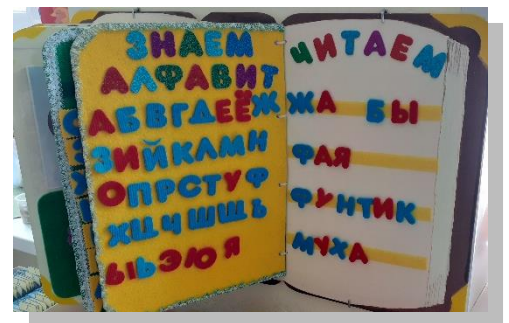 ЗНАЕМ
АЛФАВИТ
АБВГДЕЁЖ
ЗИЙКЛМН
ОПРСТУФ
ХЦЧШЩЪ
ЫЬЭЮЯ
ЧИТАЕМ
ЖА БЫ
ФАЯ
ФУНТИК
МУХА